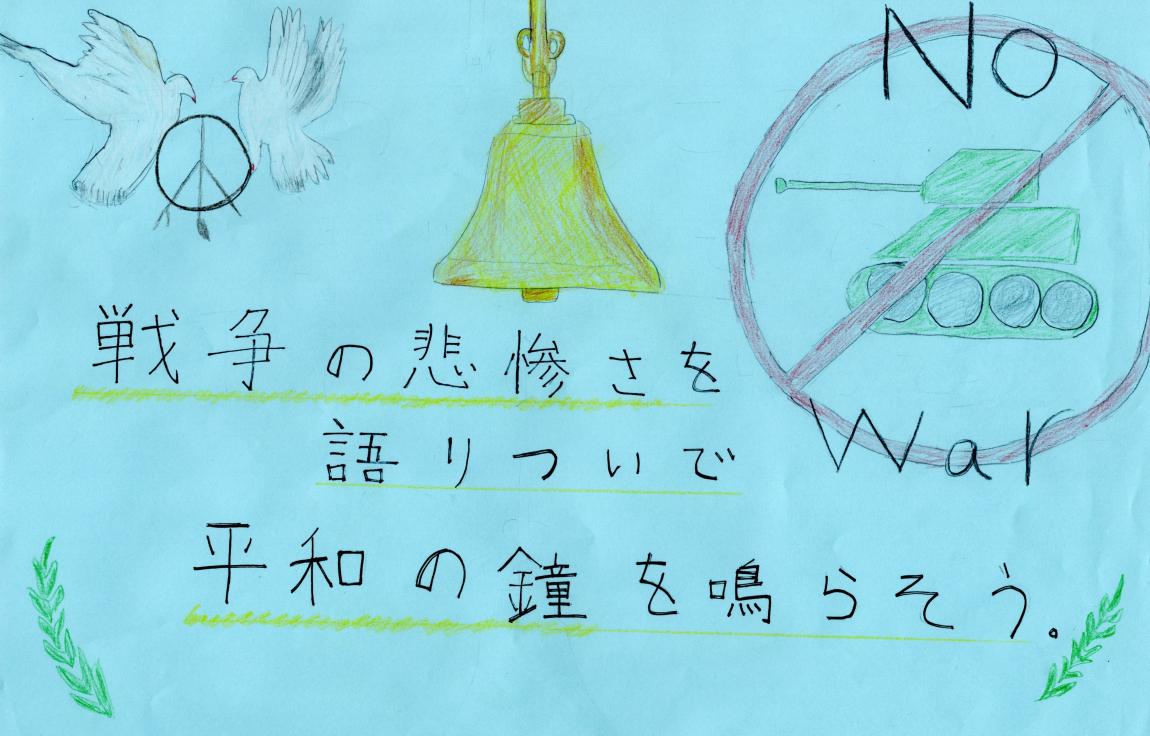 No
War
戦争の悲惨さを
語りついで
平和の鐘を鳴らそう。